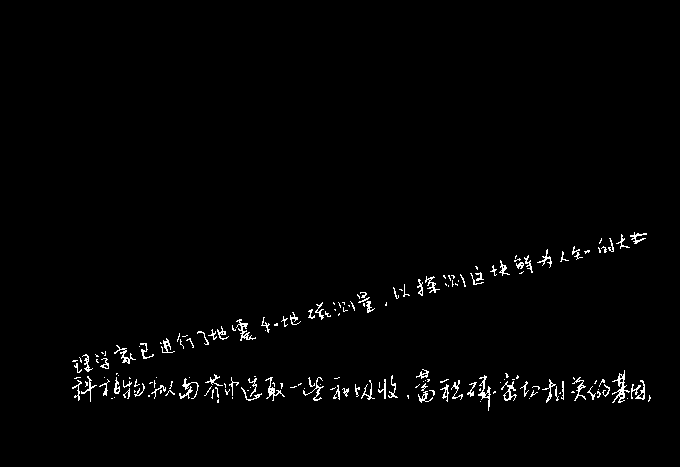 理学家已进行了地震和地磁测量，以探测这块鲜为人知的大
科植物拟南芥中选取一些和吸收、蓄积磷密切相关的基因，